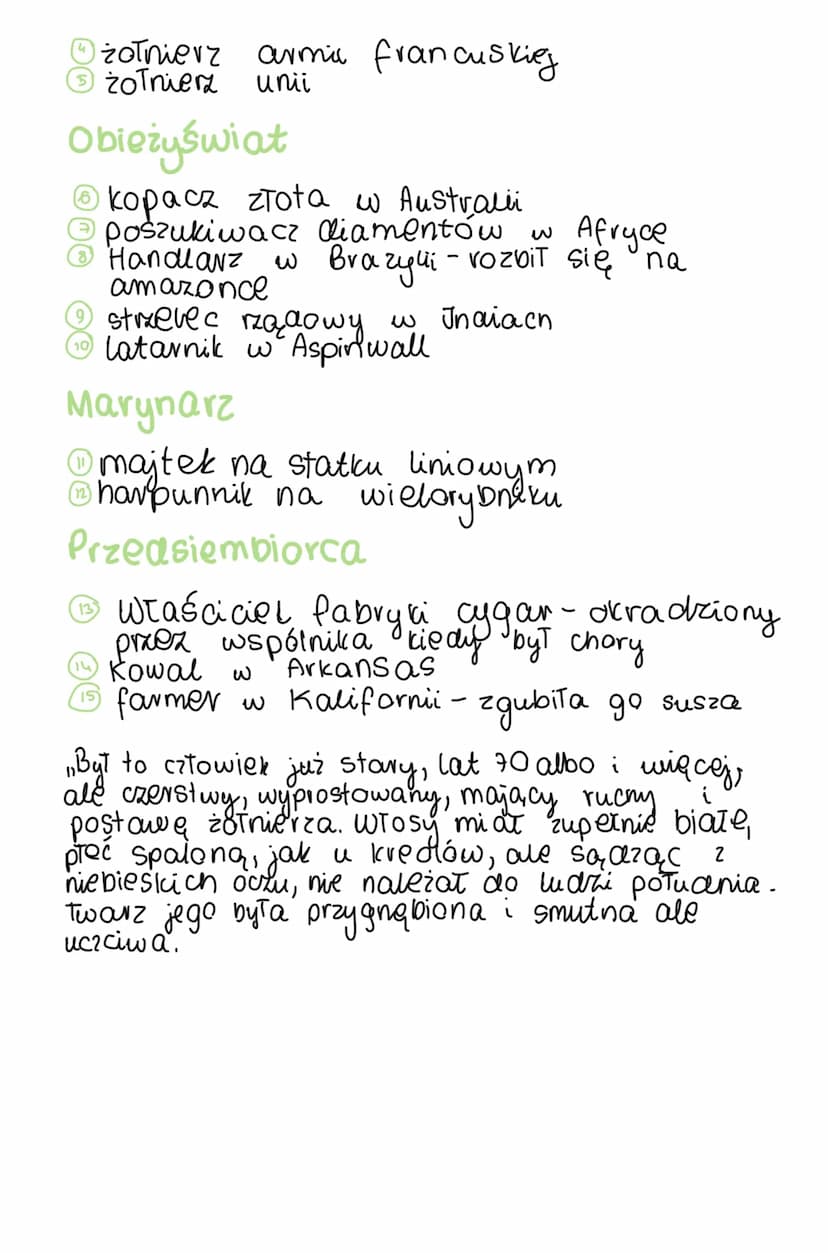 ④ żołnierz armii francuskiej
⑤ żołnierz unii
Obieżyświat
⑥ kopacz złota w Australii
⑦ poszukiwacz diamentów w Afryce
⑧ Handlarz w Brazylii - rozbił się na
amazonce
⑨ strzelec rządowy w Indiach
⑩ latarnik w Aspinwall
Marynarz
⑪ majtek na statku liniowym
⑫ harpunnik na wielorybniku
Przedsiembiorca
⑬ właściciel fabryki cygar - okradziony
przez wspólnika kiedy był chory
⑭ kowal w Arkansas
⑮ farmer w Kalifornii - zgubiła go susza
„Był to człowiek już stary, lat 70 albo i więcej,
ale czerstwy, wyprostowany, mający ruchy i
postawę żołnierza. Włosy miał zupełnie białe,
płeć spaloną, jak u kreolów, ale sądząc z
niebieskich oczu, nie należał do ludzi południa.
Twarz jego była przygnębiona i smutna ale
uczciwa.